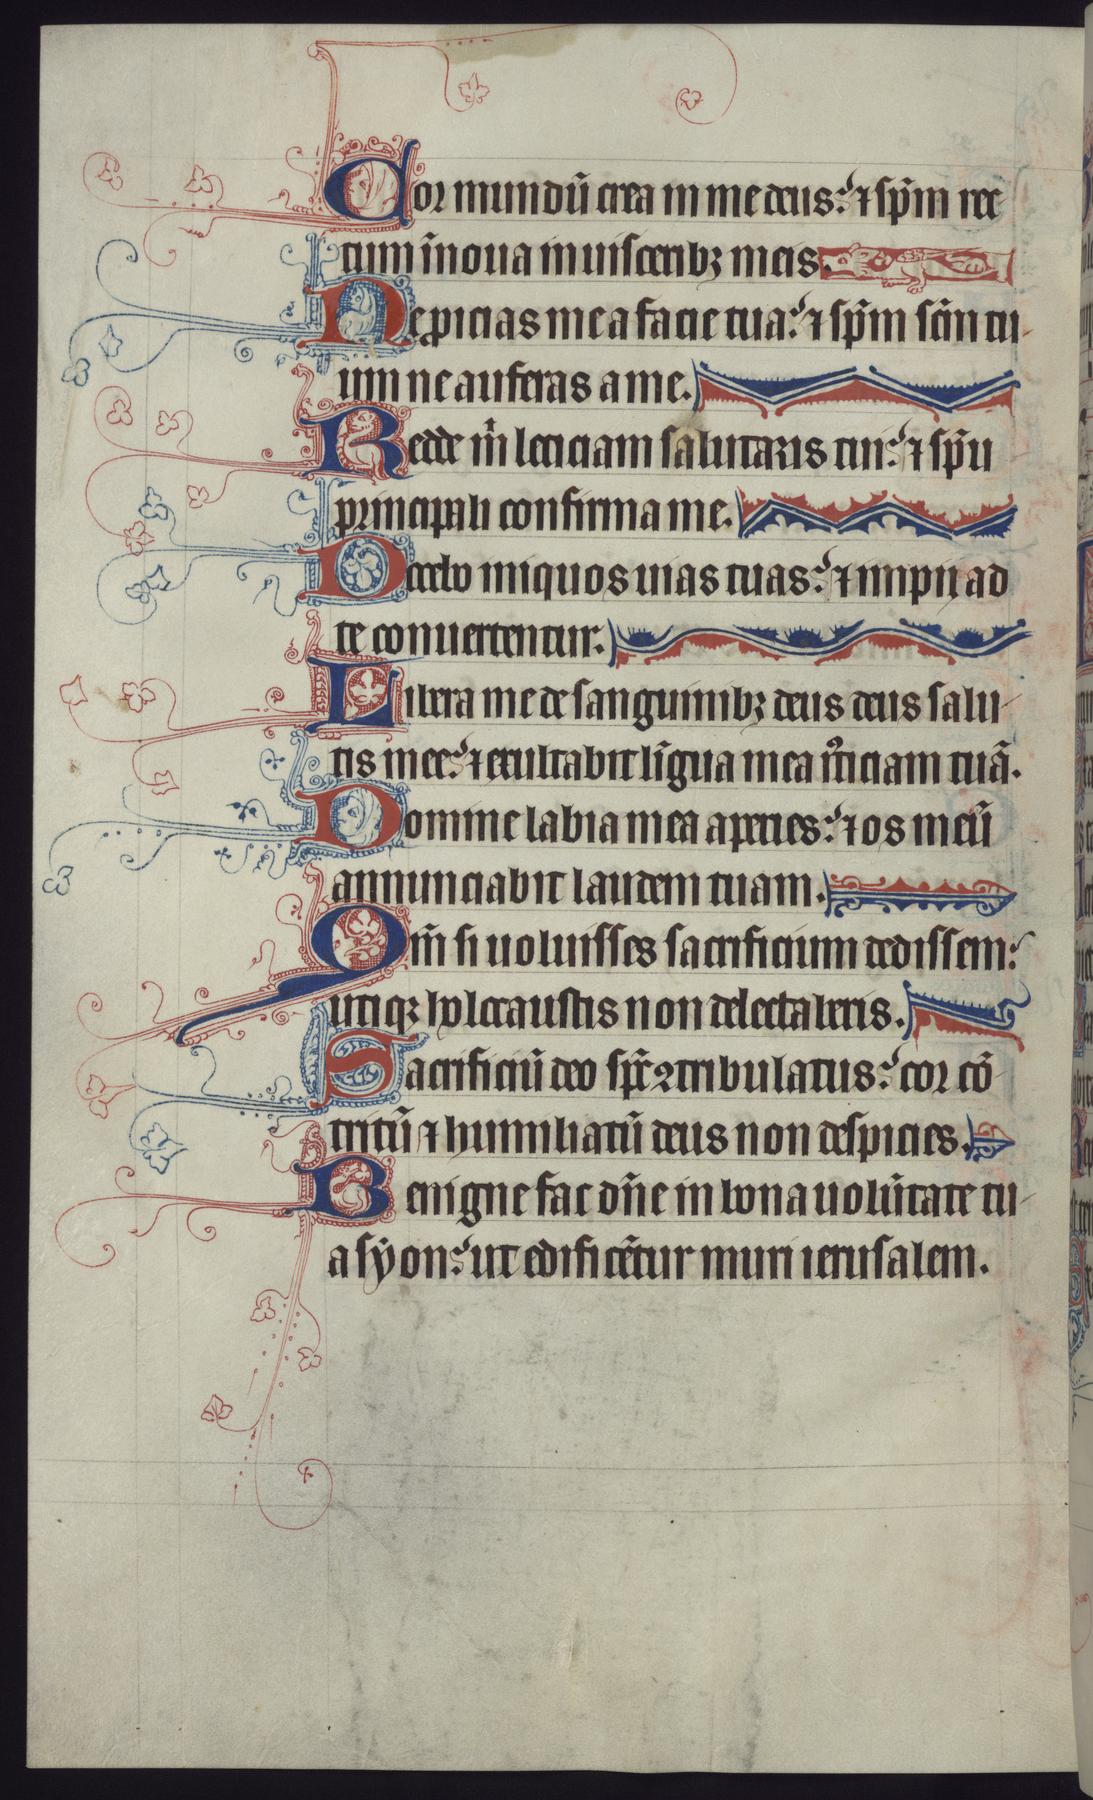 Cor mundū crea in me deus: ⁊ sp̄m rec
tum īnoua in uisceribꝫ meis.
Ne ꝓicias me a facie tua: ⁊ sp̄m sc̄m tu-
um ne auferas a me.
Redde m̄ leticiam salutaris tui: ⁊ sp̄u
principali confirma me.
Docebo iniquos uias tuas: ⁊ impii ad
te conuertentur.
Libera me de sanguinibꝫ deus deus salu-
tis mee: ⁊ exultabit līgua mea iusticiam tuā.
Domine labia mea aperies: ⁊ os meū
annunciabit laudem tuam.
Qm̄ si uoluisses sacrificium dedissem:
utiqꝫ holocaustis non delectaberis.
Sacrificiū deo sp̄c ꝯtribulatus: cor cō-
tritū ⁊ humiliatū deus non despicies.
Benigne fac dn̄e in bona uolūtate tu-
a syon: ut edificētur muri ierusalem.